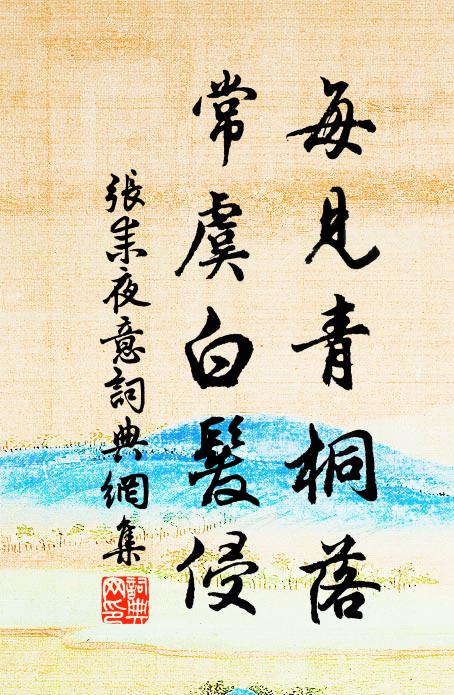 每見青桐落
常虞白髮侵
張耒夜意詞典網集
詞典